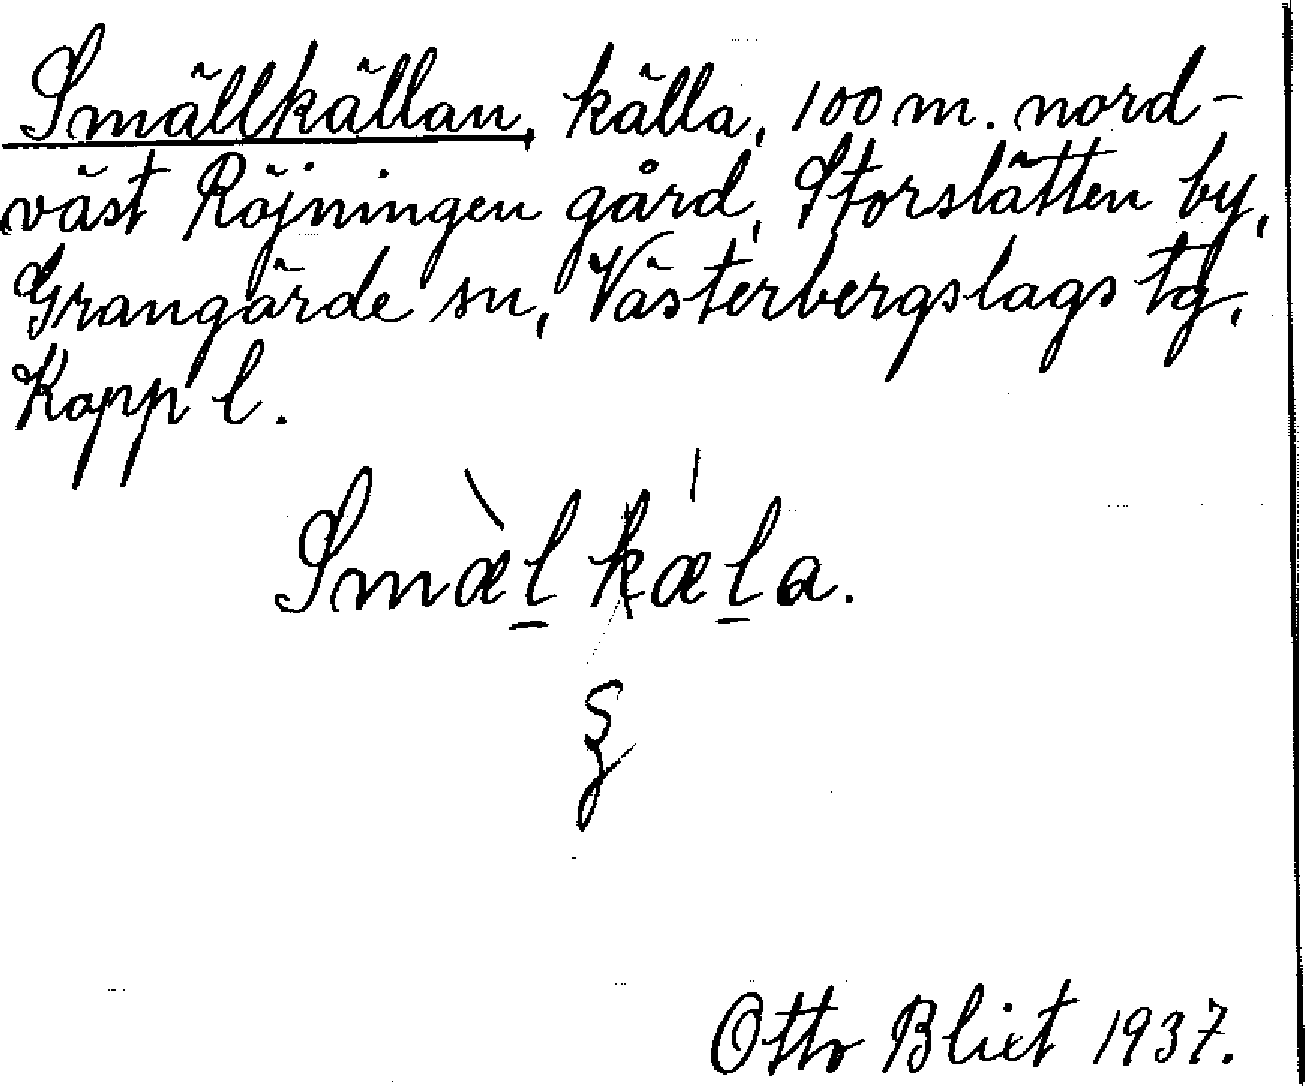 Smällkällan, källa, 100 m. nord-
väst Röjningen gård, Storslätten by,
Grangärde sn, Västerbergslags tg,
Kopp l.
Smæ̀l kǽla.
Otto Blixt 1937.